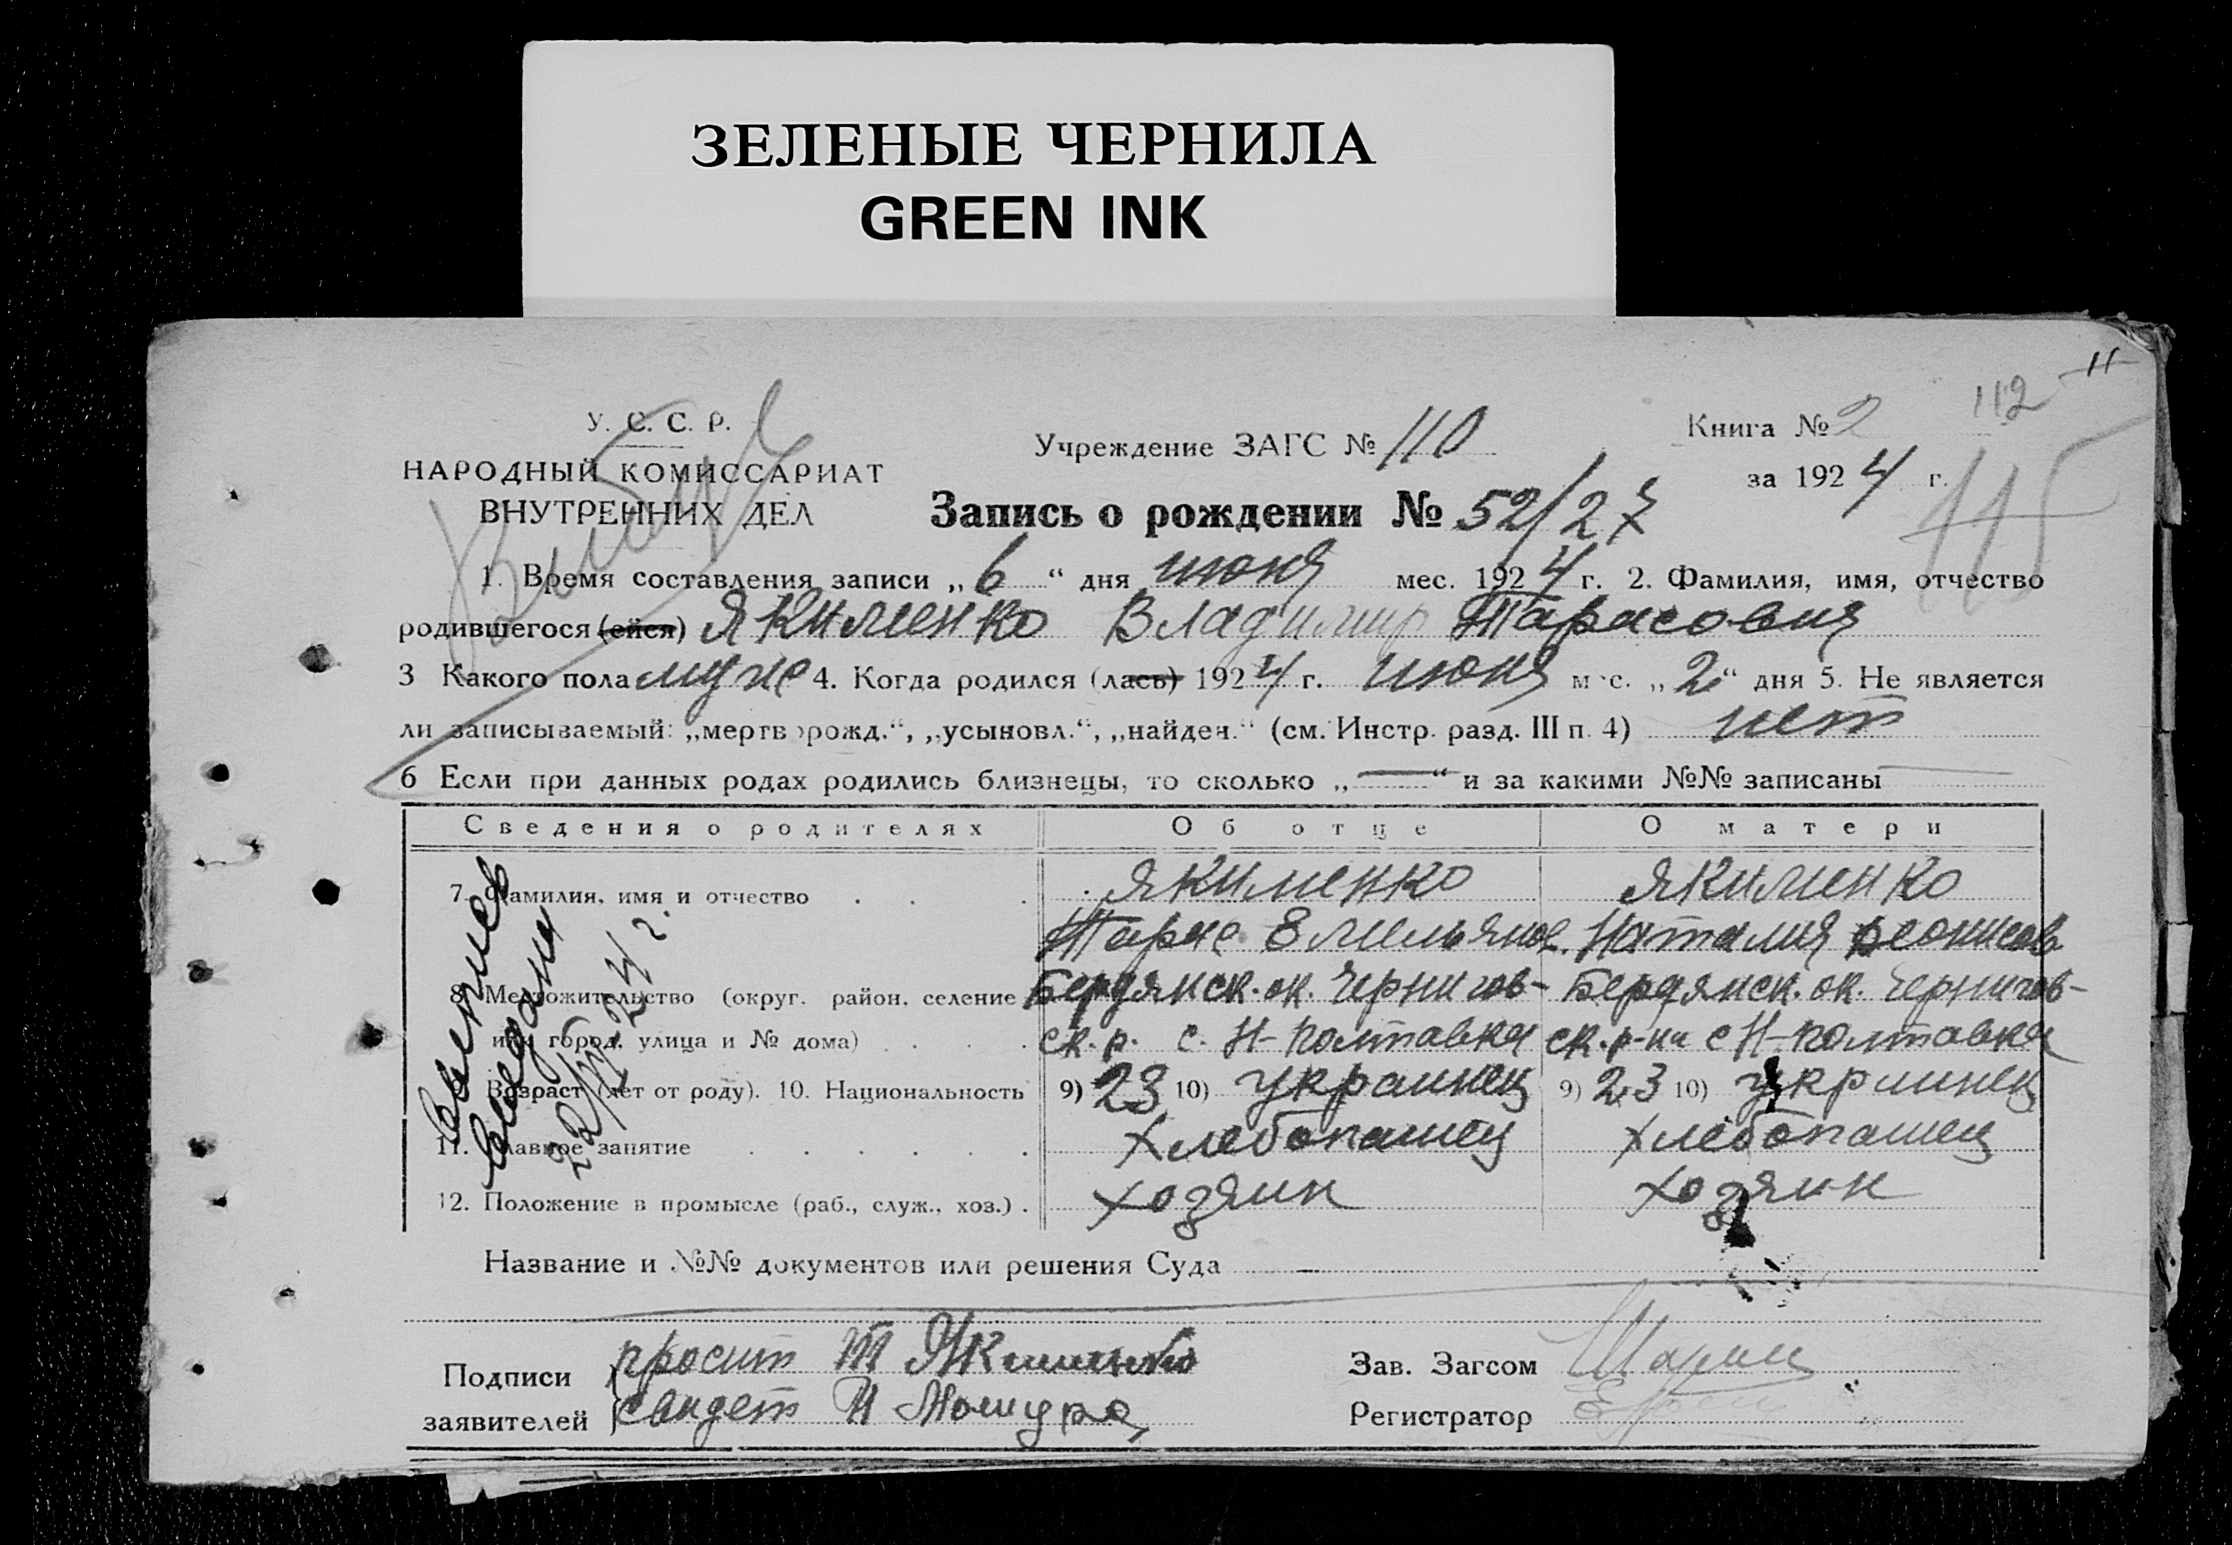 ЗЕЛЕНЫЕ ЧЕРНИЛА
GREEN INK
У. С. С. Р.
НАРОДНЫЙ КОМИССАРИАТ
ВНУТРЕННИХ ДЕЛ
Учреждение ЗАГС № 110
Книга № 2
112
11
за 1924 г.
115
Запись о рождении № 52/27
1. Время составления записи „ 6 “ дня июня мес. 1924 г. 2. Фамилия, имя, отчество
родившегося (ейся) Якименко Владимир Тарасовия
3 Какого пола муже 4. Когда родился (лась) 1924 г. июня мес. „ 2 “ дня 5. Не является
ли записываемый: „мертворожд.“, „усыновл.“, „найден.“ (см. Инстр. разд. III п. 4) нет
6 Если при данных родах родились близнецы, то сколько „ — “ и за какими №№ записаны
Сведения о родителях Об отце О матери
7. Фамилия, имя и отчество Якименко Якименко
Тарас Емельянов. Наталия Леонисов
8. Местожительство (округ. район, селение Бердянск. ок. Чернигов- Бердянск. ок. Чернигов-
или город, улица и № дома) ск. р. с. Н-Полтавка ск. р-на с Н-Полтавка
Возраст (лет от роду). 10. Национальность 9) 23 10) украинец 9) 23 10) украинец
11. Главное занятие Хлебопашец Хлебопашец
12. Положение в промысле (раб., служ., хоз.) Хозяин Хозяин
22/VII 24 г.
Название и №№ документов или решения Суда —
Подписи просит Т Якименко
заявителей свидет И Мошура
Зав. Загсом
Регистратор